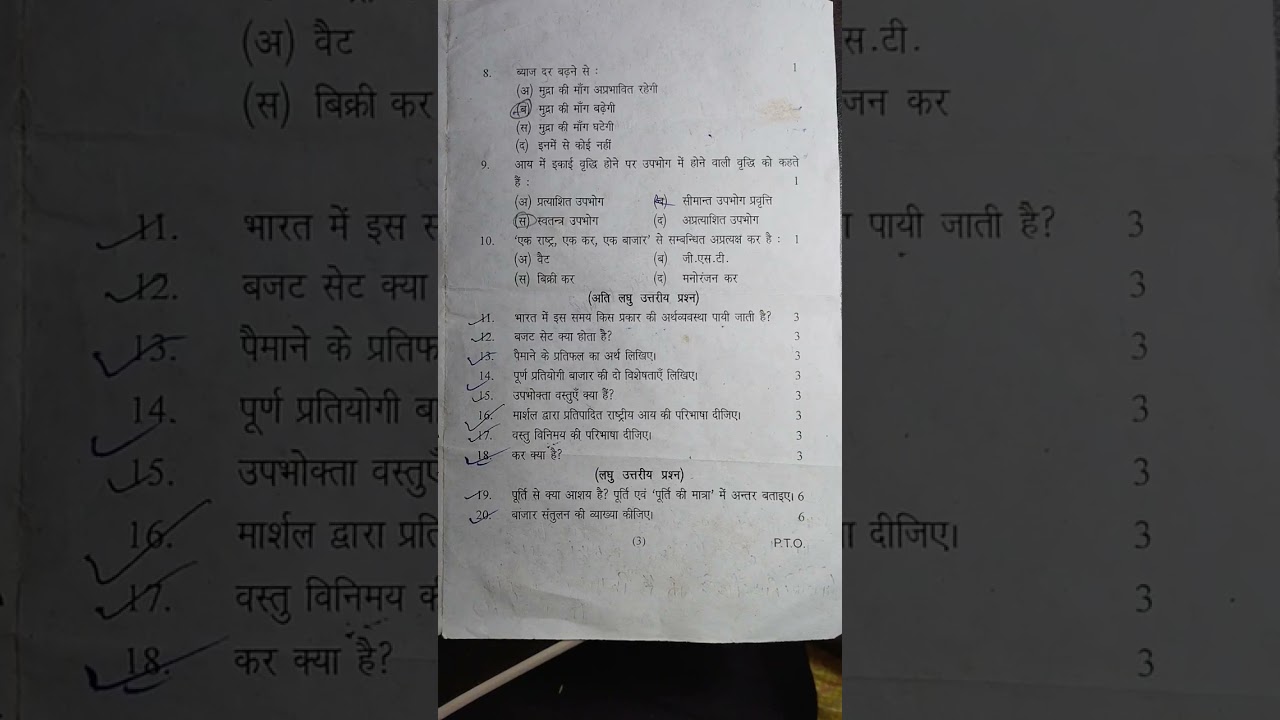 8. ब्याज दर बढ़ने से : 1
(अ) मुद्रा की माँग अप्रभावित रहेगी
(ब) मुद्रा की माँग बढ़ेगी
(स) मुद्रा की माँग घटेगी
(द) इनमें से कोई नहीं
9. आय में इकाई वृद्धि होने पर उपभोग में होने वाली वृद्धि को कहते
हैं : 1
(अ) प्रत्याशित उपभोग (ब) सीमान्त उपभोग प्रवृत्ति
(स) स्वतन्त्र उपभोग (द) अप्रत्याशित उपभोग
10. 'एक राष्ट्र, एक कर, एक बाजार' से सम्बन्धित अप्रत्यक्ष कर है : 1
(अ) वैट (ब) जी.एस.टी.
(स) बिक्री कर (द) मनोरंजन कर
(अति लघु उत्तरीय प्रश्न)
11. भारत में इस समय किस प्रकार की अर्थव्यवस्था पायी जाती है? 3
12. बजट सेट क्या होता है? 3
13. पैमाने के प्रतिफल का अर्थ लिखिए। 3
14. पूर्ण प्रतियोगी बाजार की दो विशेषताएँ लिखिए। 3
15. उपभोक्ता वस्तुएँ क्या हैं? 3
16. मार्शल द्वारा प्रतिपादित राष्ट्रीय आय की परिभाषा दीजिए। 3
17. वस्तु विनिमय की परिभाषा दीजिए। 3
18. कर क्या है? 3
(लघु उत्तरीय प्रश्न)
19. पूर्ति से क्या आशय है? पूर्ति एवं 'पूर्ति की मात्रा' में अन्तर बताइए। 6
20. बाजार संतुलन की व्याख्या कीजिए। 6
(3) P.T.O.